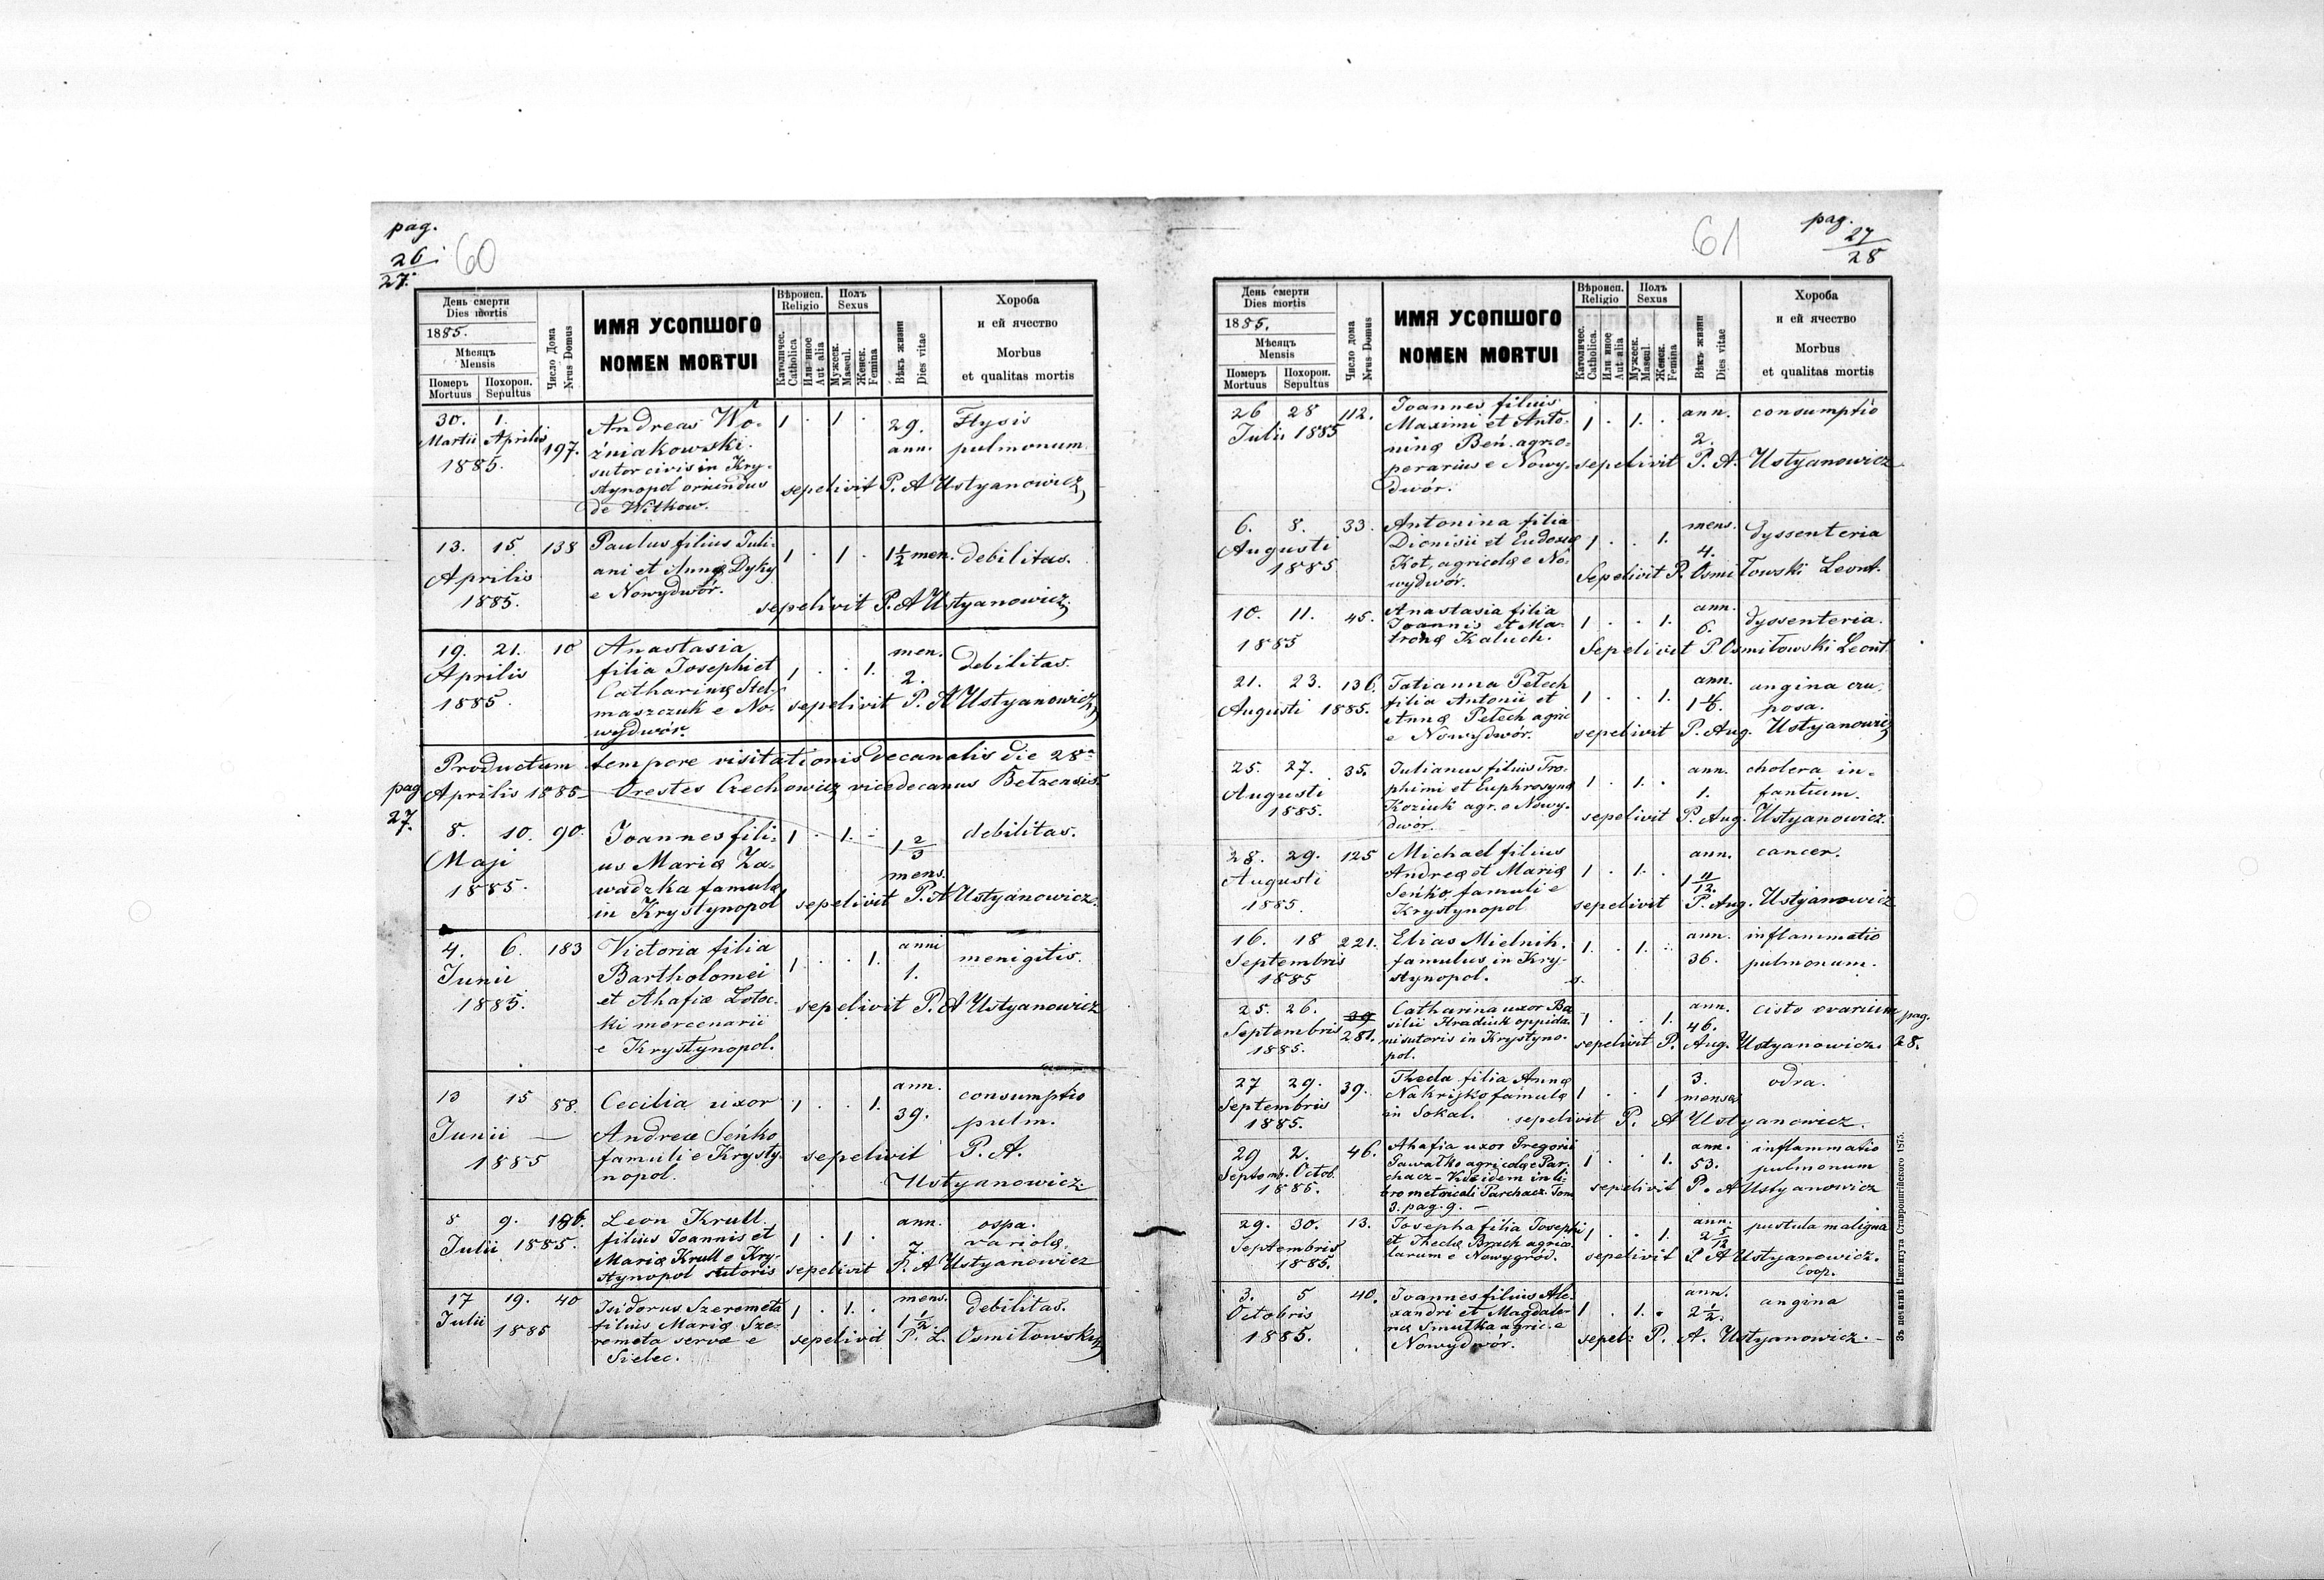 pag.
26
27.
60
День смерти
Dies mortis
1885.
Мѣсяцъ
Mensis
Померъ
Mortuus
Похорон.
Sepultus
Число Дома
Nrus Domus
ИМЯ УСОПШОГО
NOMEN MORTUI
Вѣроисп.
Religio
Католичес.
Catholica
Или иное
Aut alia
Полъ
Sexus
Мужеск.
Mascul.
Женск.
Femina
Вѣкъ жизни
Dies vitae
Хороба
и ей ячество
Morbus
et qualitas mortis
30. 1. 197. Andreas Wo- 1 . 1 . 29. Ftysis
Martii Aprilis źniakowski ann. pulmonum
1885. sutor civis in Kry-
stynopol oriundus sepelivit P. A Ustyanowicz
de Witkow.
13. 15. 138 Paulus filius Juli- 1 . 1 . 1 1/2 men. debilitas.
Aprilis ani et Annæ Dyky
1885. e Nowydwór. sepelivit P. A Ustyanowicz
19. 21. 10 Anastasia men.
Aprilis filia Josephi et 1 . . 1. 2. debilitas.
1885. Catharinæ Stel-
maszczuk e No- sepelivit P. A Ustyanowicz
wydwór.
Productum tempore visitationis decanalis die 28a
pag Aprilis 1885 – Orestes Czechowicz vicedecanus Betzensis.
27.
8. 10. 90. Joannes fili- 1 . 1. . 1 2/3 debilitas.
Maji us Mariæ Za- mens.
1885. wadzka famulæ
in Krystynopol sepelivit P. A Ustyanowicz.
4. 6. 183 Victoria filia anni
Junii Bartholomei 1 . . 1. 1. menigitis.
1885. et Ahafiæ Lotoc-
ki mercenarii sepelivit P. A Ustyanowicz
e Krystynopol.
13 15 88. Cecilia uxor 1 . . 1. ann. consumptio
Junii — Andreæ Seńko 39. pulm.
1885 famuli e Krysty- sepelivit P. A.
nopol. Ustyanowicz
8 9. 186. Leon Krull ann. ospa.
Julii 1885. filius Joannis et 1 . 1 . 7. variola.
Mariæ Krull e Kry-
stynopol sutoris sepelivit P. A Ustyanowicz
17 19. 40 Isidorus Szeremeta 1 . 1. . mens. debilitas.
Julii filius Mariæ Sze- 1/2
1885 remeta servæ e sepelivit P. L. Osmiłowsky
Sielec.
61
pag.
27
28
День смерти
Dies mortis
1885.
Мѣсяцъ
Mensis
Померъ
Mortuus
Похорон.
Sepultus
Число дома
Nrus Domus
ИМЯ УСОПШОГО
NOMEN MORTUI
Вѣроисп.
Religio
Католичес.
Catholica.
Или иное
Aut alia
Полъ
Sexus
Мужеск.
Mascul.
Женск.
Femina
Вѣкъ жизни
Dies vitae
Хороба
и ей ячество
Morbus
et qualitas mortis
26 28 112. Joannes filius ann. consumptio
Julii 1885 Maximi et Anto- 1 . 1. . 2.
ninæ Beń. agr.o-
perarius e Nowy- sepelivit P. A. Ustyanowicz
dwór.
6. 8. 33. Antonina filia mens. dyssenteria
Augusti Dionisii et Eudoxiæ 1 . . 1. 4.
1885 Kot, agricolæ e No- Sepelivit P. Osmiłowski Leont.
wydwór.
10. 11. 45. Anastasia filia ann.
Joannis et Ma- 1 . . 1. 6. dyssenteria.
1885 tronæ Kaluch. Sepelivit P. Osmiłowski Leont
21. 23. 136. Tatianna Pełech ann. angina cru-
Augusti 1885. filia Antonii et 1 . . 1. 1 1/6. posa.
Annæ Pełech agric
e Nowydwór. sepelivit P. Aug. Ustyanowicz
25. 27. 35. Julianus filius Tro- ann. cholera in-
Augusti phimi et Euphrosynæ 1 . 1. . 1. fantium.
1885. Koziuk agr. e Nowy-
dwór. sepelivit P. Aug. Ustyanowicz.
28. 29. 125 Michael filius ann. cancer.
Augusti Andreæ et Mariæ 1 . 1. . 1 11/12.
1885. Seńko famuli e
Krystynopol sepelivit P. Aug. Ustyanowicz
16. 18 221. Elias Mielnik. ann. inflammatio
Septembris famulus in Kry- 1. . 1. . 36. pulmonum.
1885 stynopol. s.
25. 26. 39 Catharina uxor Ba- ann. cisto ovarium pag.
Septembris 281. silii Hradiuk oppida- 1 . . 1. 46.
1885. ni sutoris in Krystyno- sepelivit P. Aug. Ustyanowicz. 28.
pol.
27 29. 39. Thecla filia Annæ 3. odra.
Septembris Nakrijko famulæ 1 . . 1 menses
1885. in Sokal. sepelivit P. A Ustyanowicz.
29 2. 46. Ahafia uxor Gregorii ann. inflammatio
Septemb. Octob. Pawałko agricolæ e Par- 1 . . 1. 53. pulmonum
1885. chacz – ibidem in li-
bro metricali Parchacz. Tom sepelivit P. A Ustyanowicz
3. pag. 9. –
29. 30. 13. Josepha filia Josephi 1 . . 1. ann. pustula maligna
Septembris et Theclæ Brach agrico- 2 5/12
1885. larum e Nowygród. sepelivit P. A Ustyanowicz.
Coop.
3. 5 40. Joannes filius Ale- ann. angina
Octobris xandri et Magdale- 1 . 1. . 2 1/2.
1885. næ Smutka agric. e sepel: P. A. Ustyanowicz. –
Nowydwór.
Въ печатнѣ Института Ставропигійского 1875.